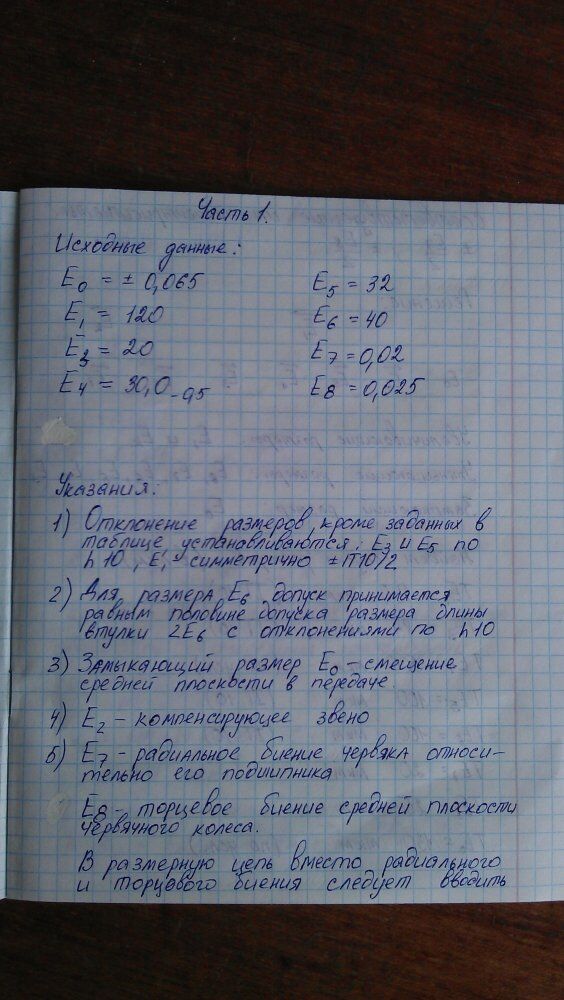 Часть 1.
Исходные данные:
E0 = ± 0,065
E5 = 32
E1 = 120
E6 = 40
E3 = 20
E7 = 0,02
E4 = 30,0-0,5
E8 = 0,025
Указания:
1) Отклонение размеров, кроме заданных в
таблице устанавливаются: E3 и E5 по
h10, E1 симметрично ± IT10/2
2) Для размера E6 допуск принимается
равным половине допуска размера длины
втулки 2E6 с отклонениями по h10
3) Замыкающий размер E0 – смещение
средней плоскости в передаче.
4) E2 – компенсирующее звено
5) E7 – радиальное биение червяка относи-
тельно его подшипника
E8 – торцевое биение средней плоскости
червячного колеса.
В размерную цепь вместо радиального
и торцового биения следует вводить